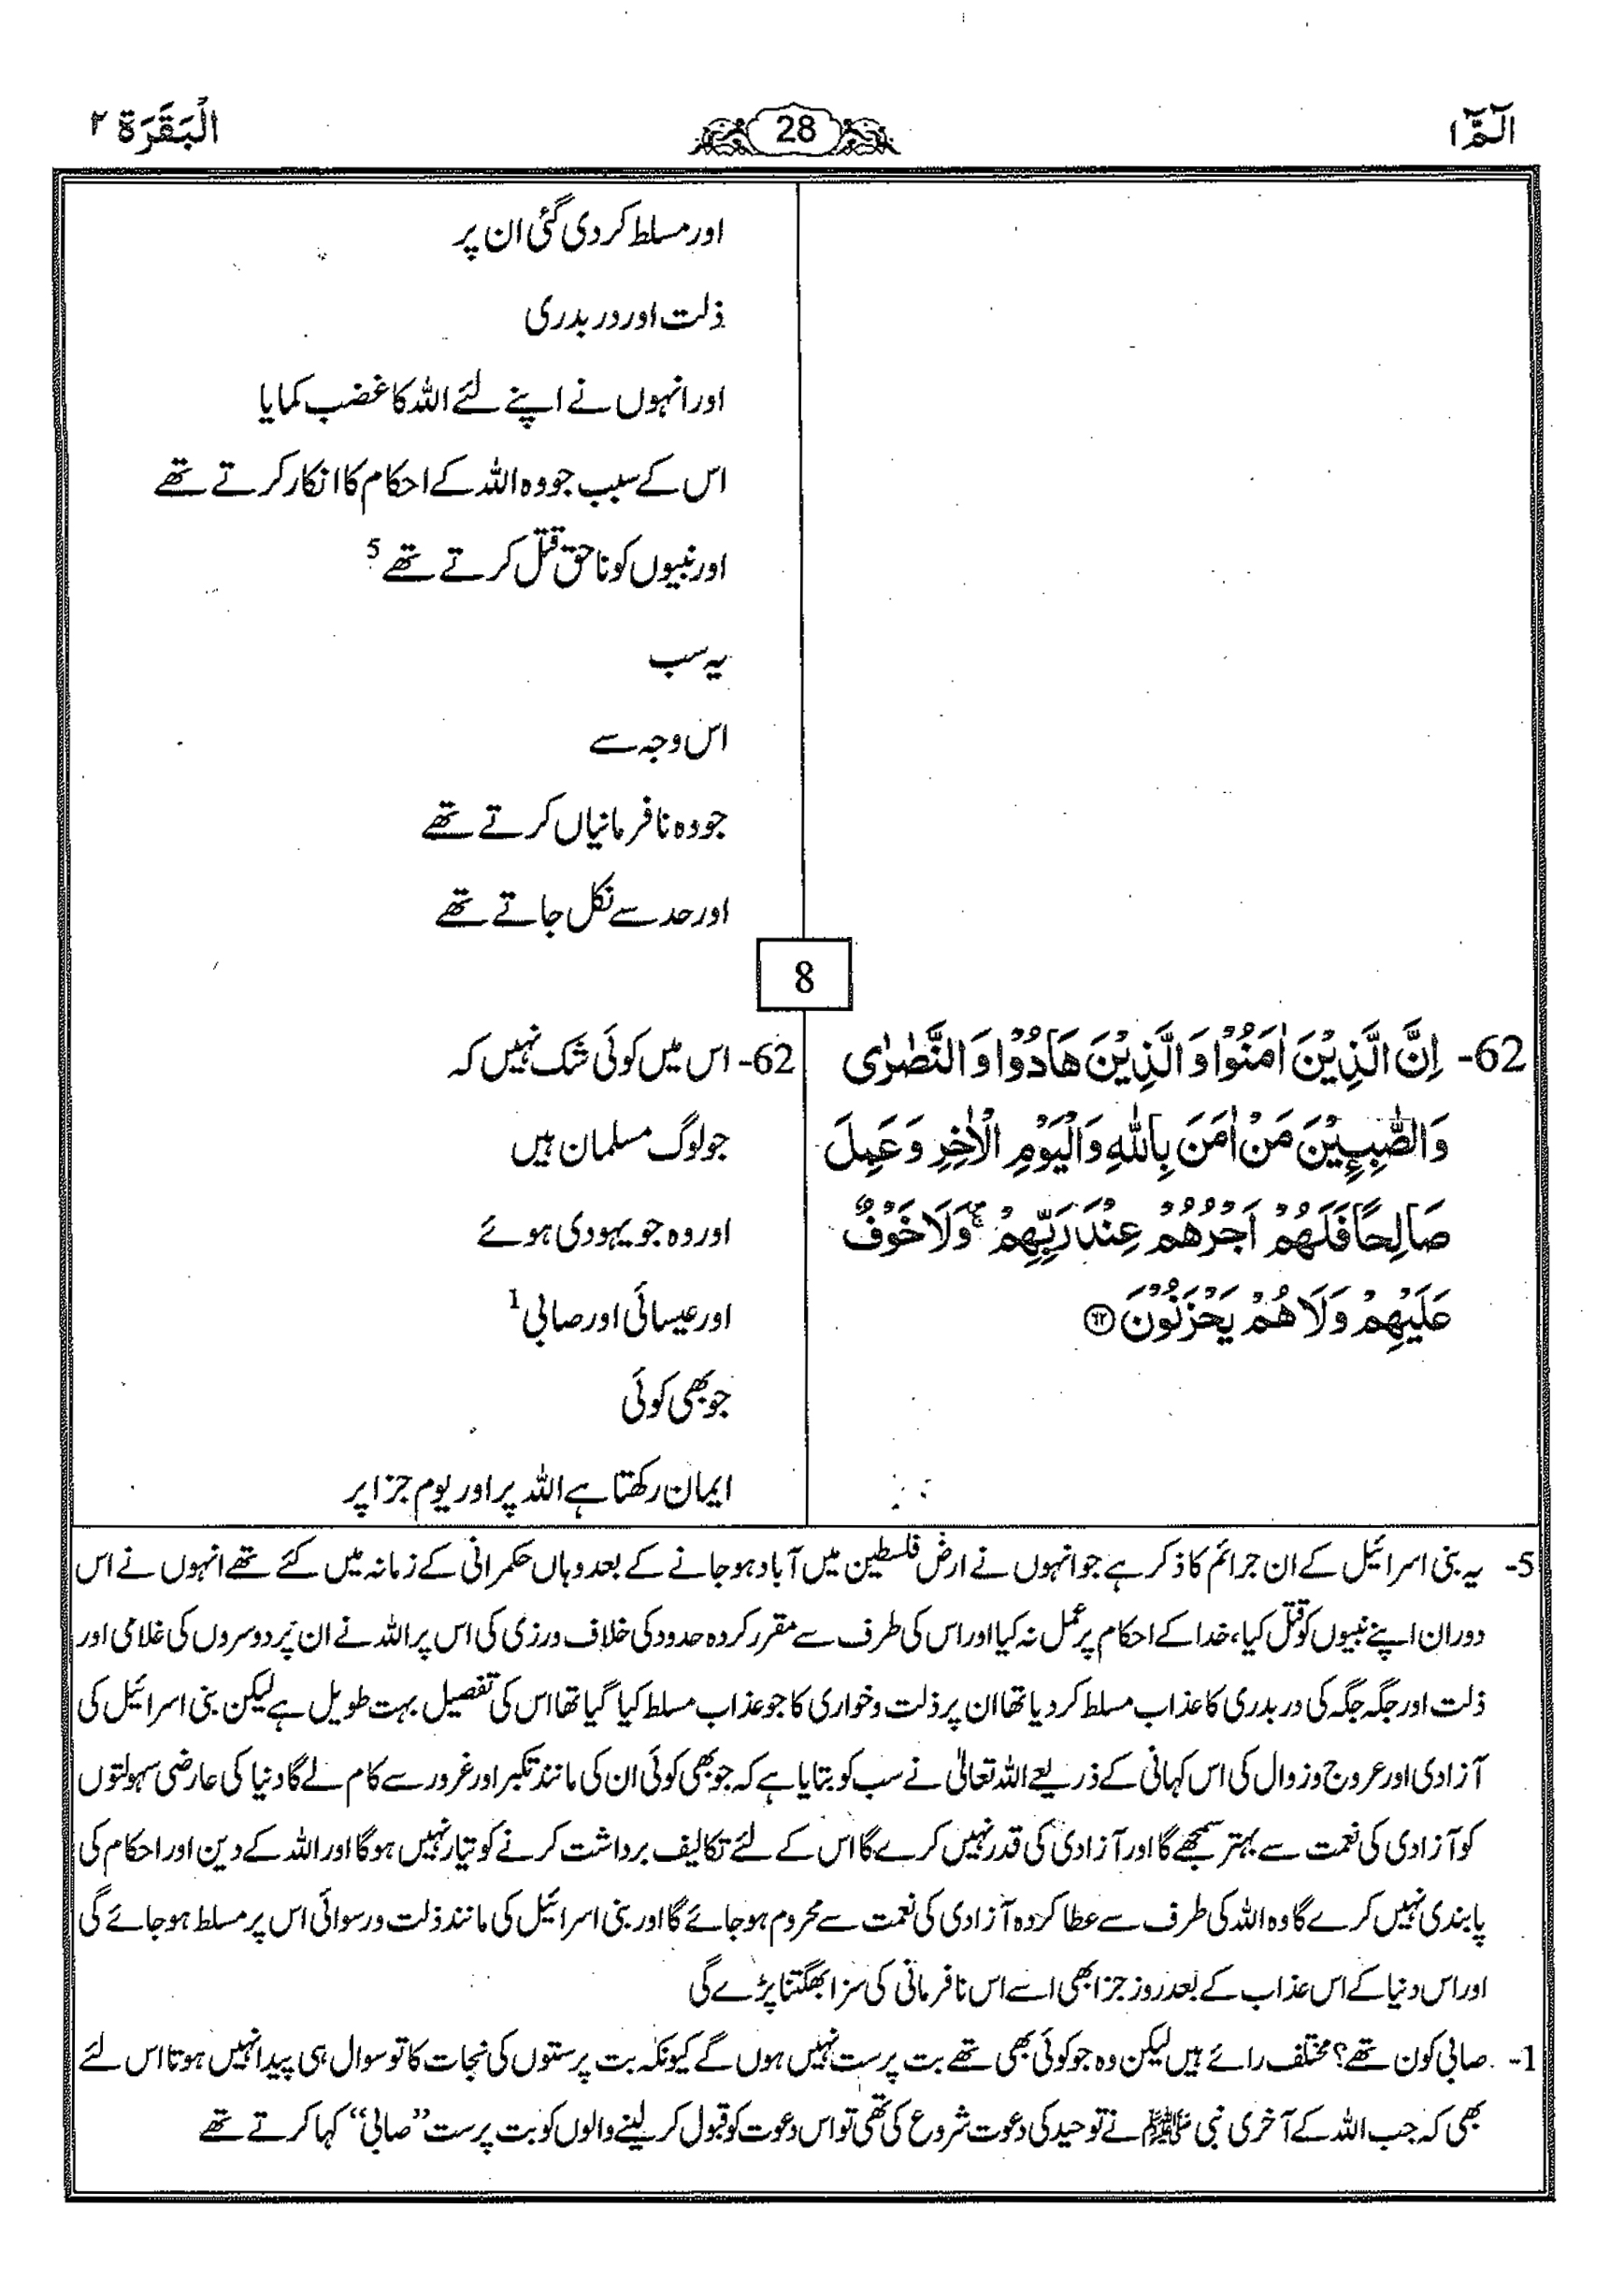 الٓمّٓ ۱
28
الْبَقَرَة ۲
اور مسلط کر دی گئی ان پر
ذلت اور در بدری
اور انہوں نے اپنے لئے اللہ کا غضب کمایا
اس کے سبب جو وہ اللہ کے احکام کا انکار کرتے تھے
اور نبیوں کو ناحق قتل کرتے تھے 5
یہ سب
اس وجہ سے
جو وہ نافرمانیاں کرتے تھے
اور حد سے نکل جاتے تھے
8
62- اِنَّ الَّذِیْنَ اٰمَنُوْا وَ الَّذِیْنَ هَادُوْا وَ النَّصٰرٰی
وَالصّٰبِـِٕیْنَ مَنْ اٰمَنَ بِاللّٰهِ وَالْیَوْمِ الْاٰخِرِ وَ عَمِلَ
صَالِحًا فَلَهُمْ اَجْرُهُمْ عِنْدَ رَبِّهِمْ ۚ وَلَا خَوْفٌ
عَلَیْهِمْ وَلَا هُمْ یَحْزَنُوْنَ ﴿۶۲﴾
62- اس میں کوئی شک نہیں کہ
جو لوگ مسلمان ہیں
اور وہ جو یہودی ہوئے
اور عیسائی اور صابی 1
جو بھی کوئی
ایمان رکھتا ہے اللہ پر اور یوم جزا پر
5- یہ بنی اسرائیل کے ان جرائم کا ذکر ہے جو انہوں نے ارض فلسطین میں آباد ہو جانے کے بعد وہاں حکمرانی کے زمانہ میں کئے تھے انہوں نے اس
دوران اپنے نبیوں کو قتل کیا، خدا کے احکام پر عمل نہ کیا اور اس کی طرف سے مقرر کردہ حدود کی خلاف ورزی کی اس پر اللہ نے ان پر دوسروں کی غلامی اور
ذلت اور جگہ جگہ کی در بدری کا عذاب مسلط کر دیا تھا ان پر ذلت و خواری کا جو عذاب مسلط کیا گیا تھا اس کی تفصیل بہت طویل ہے لیکن بنی اسرائیل کی
آزادی اور عروج و زوال کی اس کہانی کے ذریعے اللہ تعالیٰ نے سب کو بتایا ہے کہ جو بھی کوئی ان کی مانند تکبر اور غرور سے کام لے گا دنیا کی عارضی سہولتوں
کو آزادی کی نعمت سے بہتر سمجھے گا اور آزادی کی قدر نہیں کرے گا اس کے لئے تکالیف برداشت کرنے کو تیار نہیں ہوگا اور اللہ کے دین اور احکام کی
پابندی نہیں کرے گا وہ اللہ کی طرف سے عطا کردہ آزادی کی نعمت سے محروم ہو جائے گا اور بنی اسرائیل کی مانند ذلت و رسوائی اس پر مسلط ہو جائے گی
اور اس دنیا کے اس عذاب کے بعد روز جزا بھی اسے اس نافرمانی کی سزا بھگتنا پڑے گی
1- صابی کون تھے؟ مختلف رائے ہیں لیکن وہ جو کوئی بھی تھے بت پرست نہیں ہوں گے کیونکہ بت پرستوں کی نجات کا تو سوال ہی پیدا نہیں ہوتا اس لئے
بھی کہ جب اللہ کے آخری نبی ﷺ نے توحید کی دعوت شروع کی تھی تو اس دعوت کو قبول کر لینے والوں کو بت پرست ”صابی“ کہا کرتے تھے